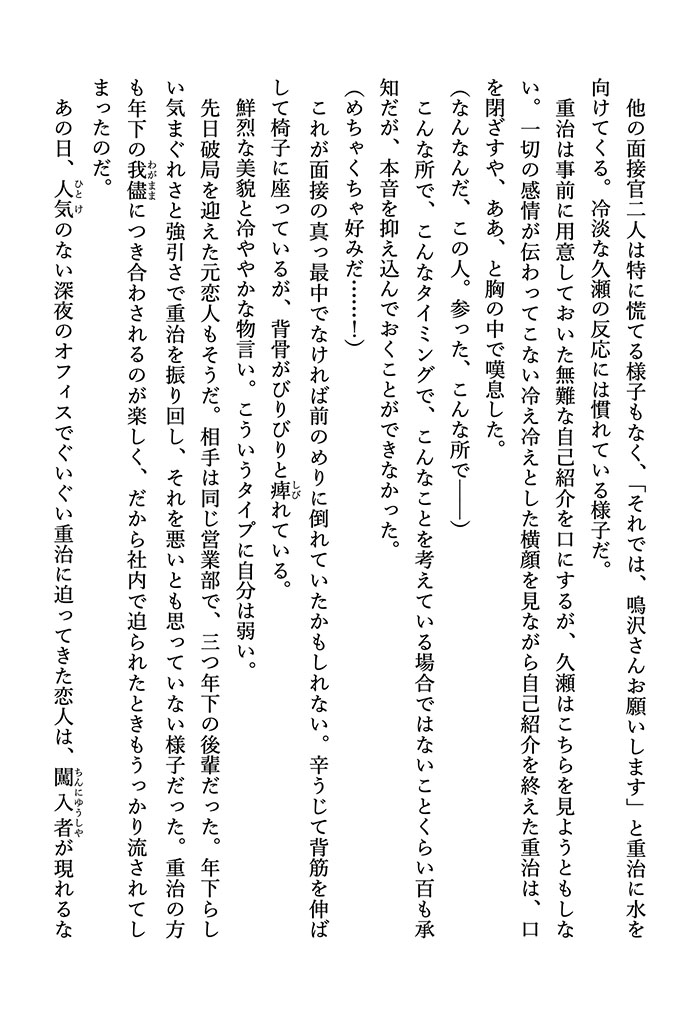 他の面接官二人は特に慌てる様子もなく、「それでは、鳴沢さんお願いします」と重治に水を
向けてくる。冷淡な久瀬の反応には慣れている様子だ。
　重治は事前に用意しておいた無難な自己紹介を口にするが、久瀬はこちらを見ようともしな
い。一切の感情が伝わってこない冷え冷えとした横顔を見ながら自己紹介を終えた重治は、口
を閉ざすや、ああ、と胸の中で嘆息した。
（なんなんだ、この人。参った、こんな所で――）
　こんな所で、こんなタイミングで、こんなことを考えている場合ではないことくらい百も承
知だが、本音を抑え込んでおくことができなかった。
（めちゃくちゃ好みだ……！）
　これが面接の真っ最中でなければ前のめりに倒れていたかもしれない。辛うじて背筋を伸ば
して椅子に座っているが、背骨がびりびりと痺しびれている。
　鮮烈な美貌と冷ややかな物言い。こういうタイプに自分は弱い。
　先日破局を迎えた元恋人もそうだ。相手は同じ営業部で、三つ年下の後輩だった。年下らし
い気まぐれさと強引さで重治を振り回し、それを悪いとも思っていない様子だった。重治の方
も年下の我儘わがままにつき合わされるのが楽しく、だから社内で迫られたときもうっかり流されてし
まったのだ。
　あの日、人気ひとけのない深夜のオフィスでぐいぐい重治に迫ってきた恋人は、闖入者ちんにゆうしやが現れるな